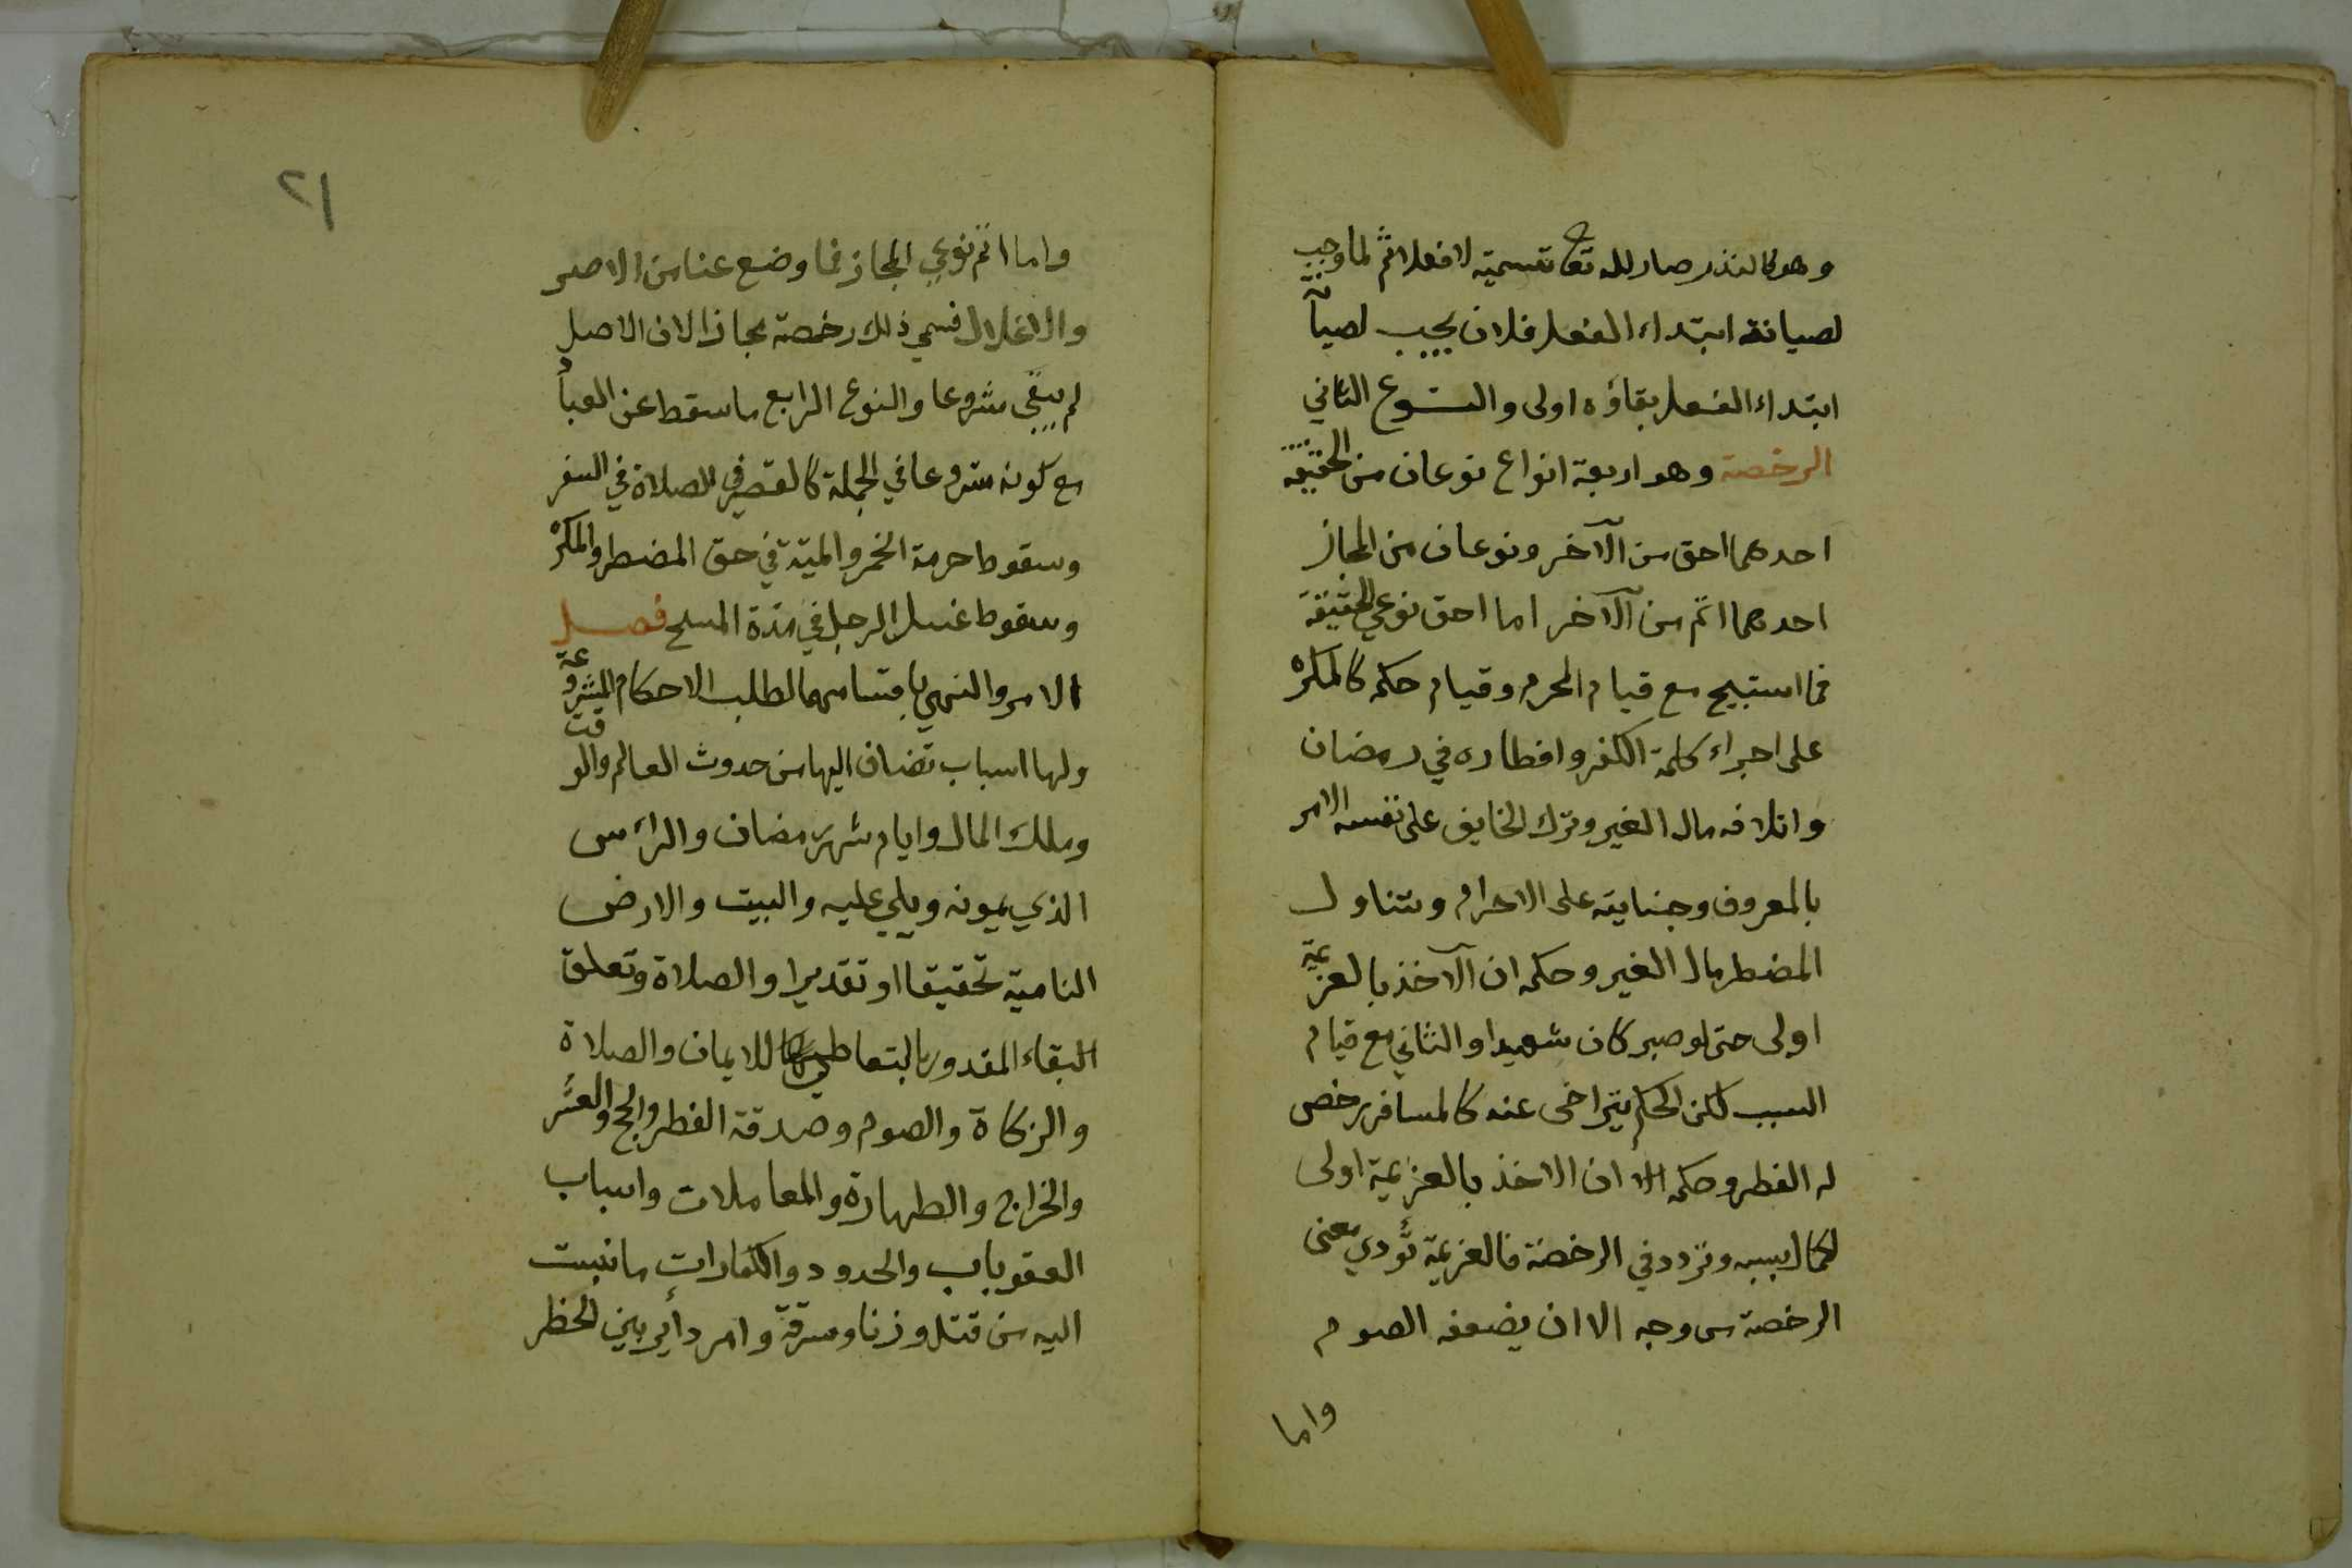 وهو كالنذر صار لله تع تسمية لا فعلا ثم لما وجب
لصيانة ابتداء الفعل فلان يجب لصيآنة
ابتداء الفعل بقاؤه اولى والنوع الثاني
الرخصة وهو اربعة انواع نوعان من الحقيقة
احدهما احق من الآخر ونوعان من المجاز
احدهما اتم من الآخر اما احق نوعي الحقيقة
فما استبيح مع قيام المحرم وقيام حكمه كالمكره
على اجراء كلمة الكفر وافطاره في رمضان
واتلافه مال الغير وترك الخايف على نفسه الامر
بالمعروف وجنايته على الاحرام وتناول
المضطر مال الغير وحكمه ان الآخذ بالعزيمة
اولى حتى لو صبر كان شهيدا والثاني مع قيام
السبب لكن الحكم يتراخى عنه كالمسافر رخص
له الفطر وحكمه ان الاخذ بالعزيمة اولى
لكمال سببه وتردد في الرخصة فالعزيمة تؤدي معنى
الرخصة من وجه الا ان يضعفه الصوم
واما
٢١
واما اتم نوعي المجاز فما وضع عنا من الاصر
والاغلال فسمي ذلك رخصة مجازا لان الاصل
لم يبقى مشروعا والنوع الرابع ما سقط عن العباد
مع كونه مشروعا في الجملة كالقصر في الصلاة في السفر
وسقوط حرمة الخمر والميتة في حق المضطر والمكره
وسقوط غسل الرجل في مدة المسح فصل
الامر والنهي باقسامهما لطلب الاحكام المشروعة
ولها اسباب تضاف اليها من حدوث العالم والوقت
وملك المال وايام شهر رمضان والرأس
الذي يمونه ويلي عليه والبيت والارض
النامية تحقيقا او تقديرا والصلاة وتعلق
البقاء المقدور بالتعاطي للايمان والصلاة
والزكاة والصوم وصدقة الفطر والحج والعشر
والخراج والطهارة والمعاملات واسباب
العقوباب والحدود والكفارات ما نسبت
اليه من قتل وزنا وسرقة وامر دأير بين الحظر